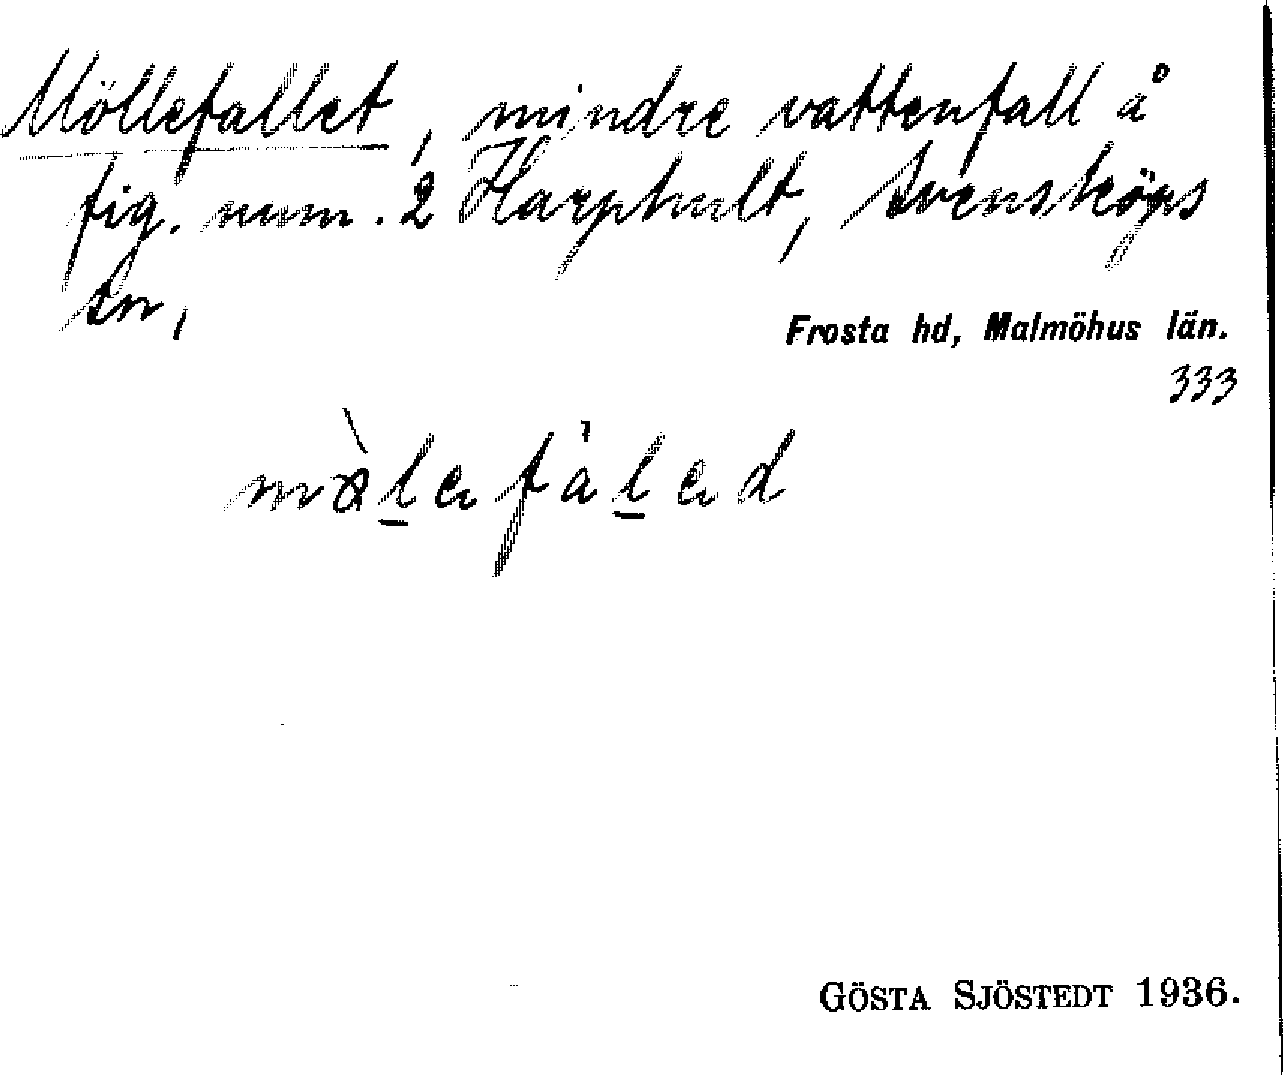 Möllefallet, mindre vattenfall å
fig. num. 2 Harphult, Svensköps
sn,
Frosta hd, Malmöhus län.
333
GÖSTA SJÖSTEDT 1936.